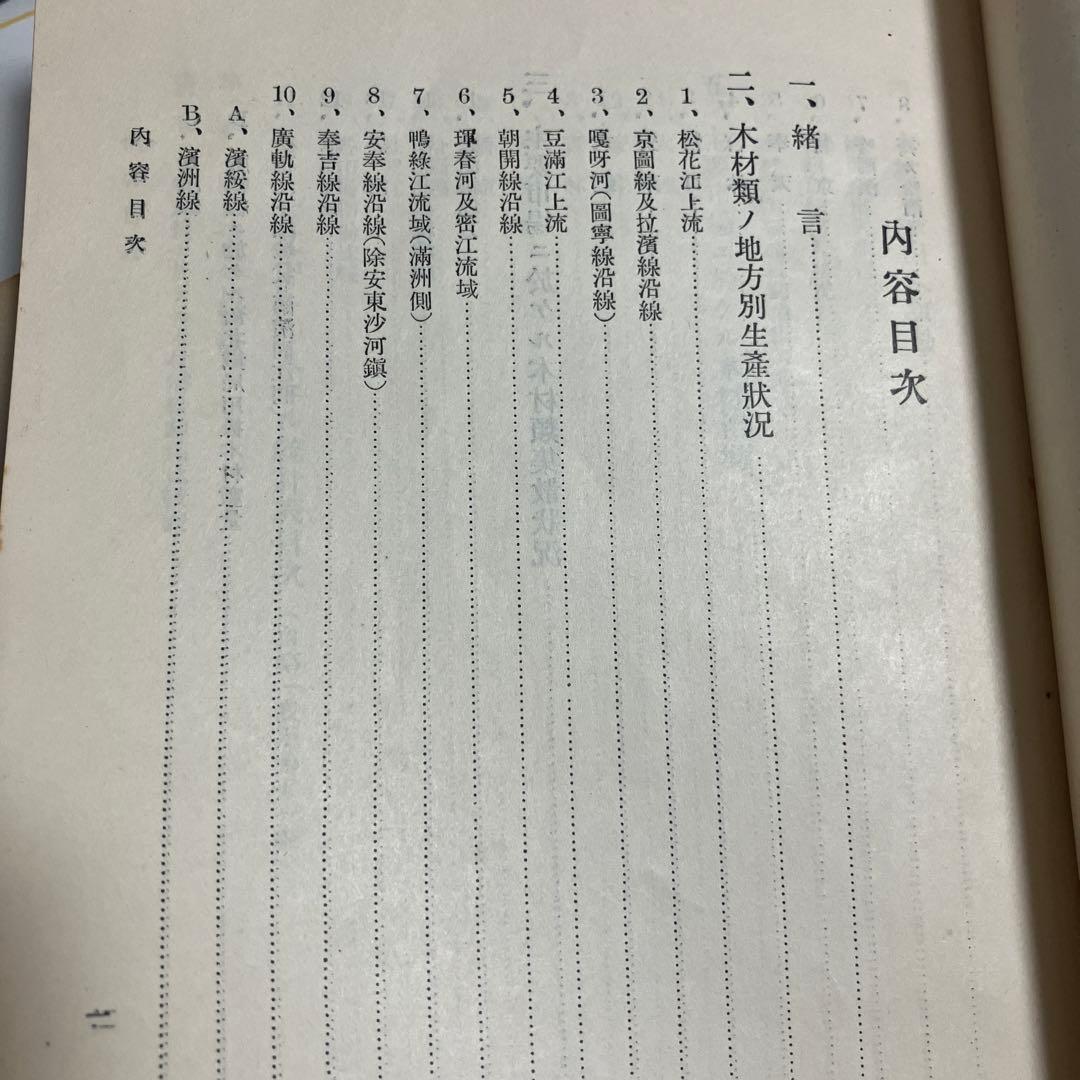 內容目次
一、緒言
二、木材類ノ地方別生產狀況
1、松花江上流
2、京圖線及拉濱線沿線
3、嘎呀河(圖寧線沿線)
4、豆滿江上流
5、朝開線沿線
6、琿春河及密江流域
7、鴨綠江流域(滿洲側)
8、安奉線沿線(除安東沙河鎭)
9、奉吉線沿線
10、廣軌線沿線
A、濱綏線
B、濱洲線
內容目次